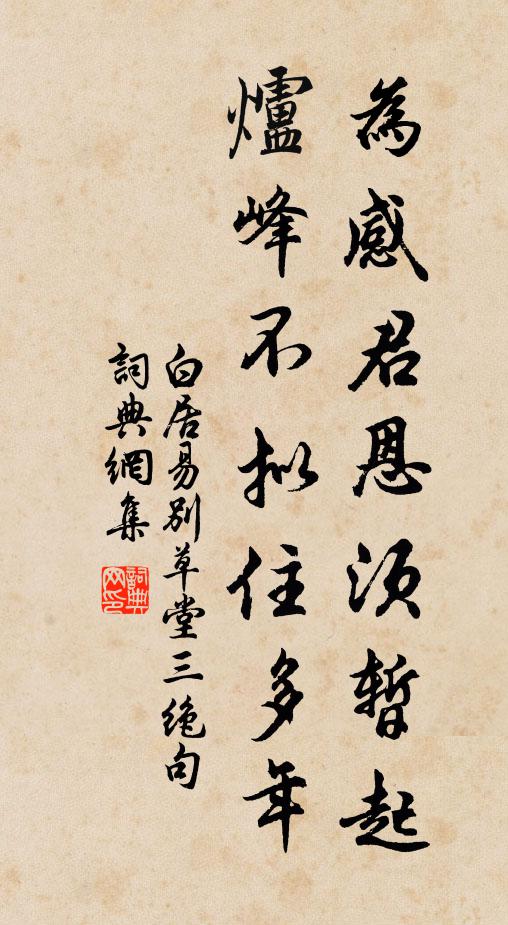 為感君恩須暫起
爐峰不擬住多年
白居易別草堂三絶句
詞典網集
詞典
网印